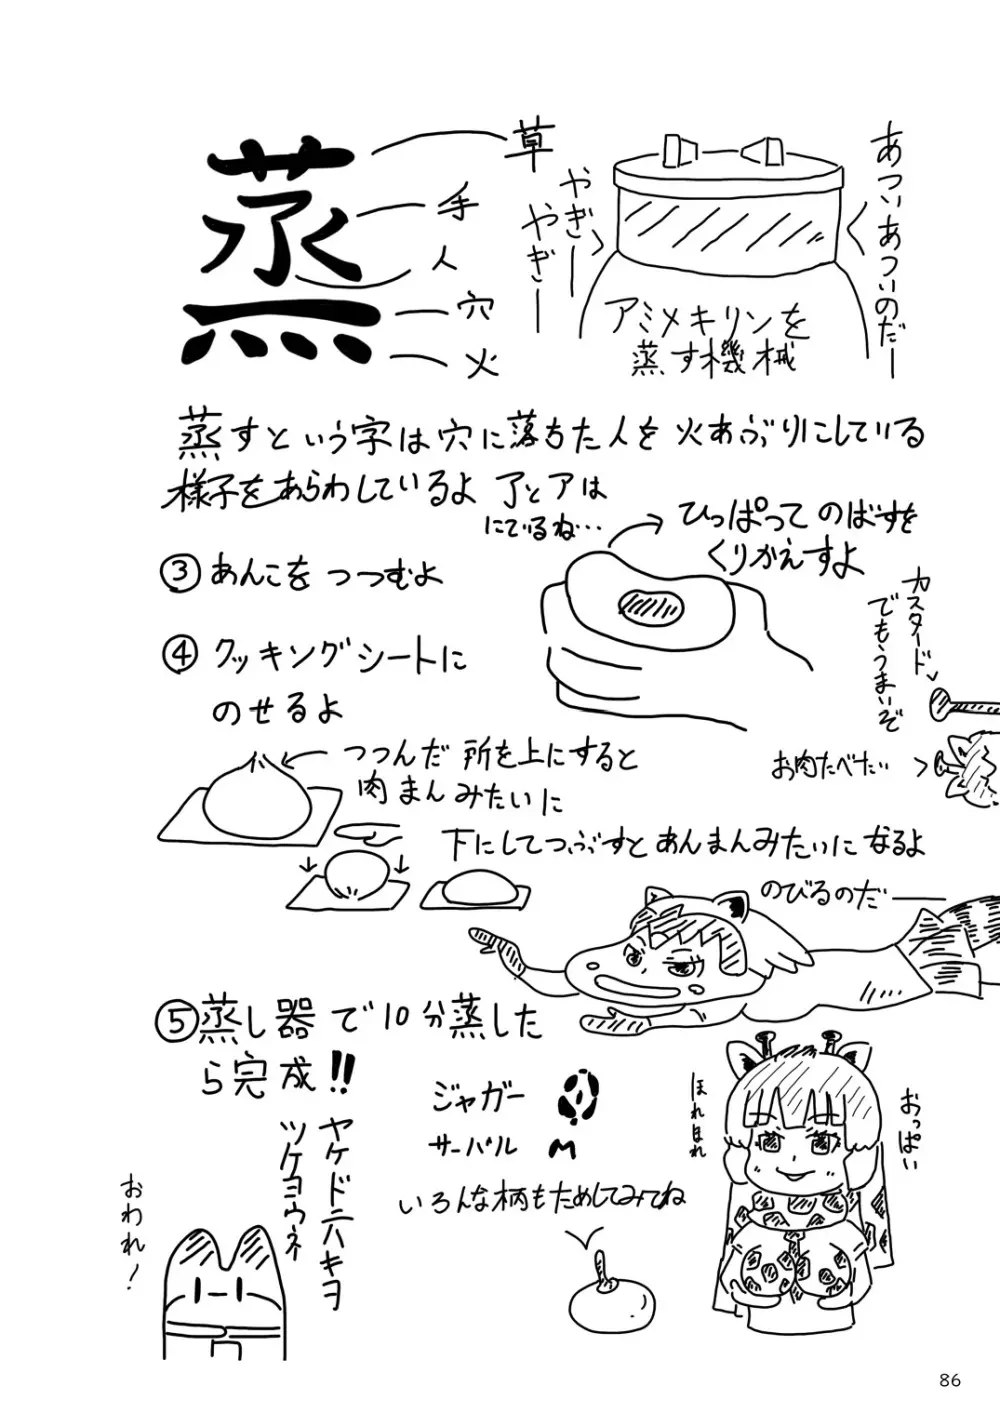 蒸
草
手
人
穴
火
やぎー
やぎー
あついあついのだー
アミメキリンを
蒸す機械
蒸すという字は穴に落ちた人を火あぶりにしている
様子をあらわしているよ 了とアは
にているね…
③あんこをつつむよ
ひっぱってのばすを
くりかえすよ
カスタード
でもうまいぞ
④クッキングシートに
のせるよ
お肉たべたい
つつんだ所を上にすると
肉まんみたいに
下にしてつぶすとあんまんみたいになるよ
のびるのだー
⑤蒸し器で10分蒸した
ら完成!!
ジャガー
サーバル
いろんな柄もためしてみてね
ほれほれ
おっぱい
ヤケドニハキヲ
ツケヨウネ
おわれ!
86